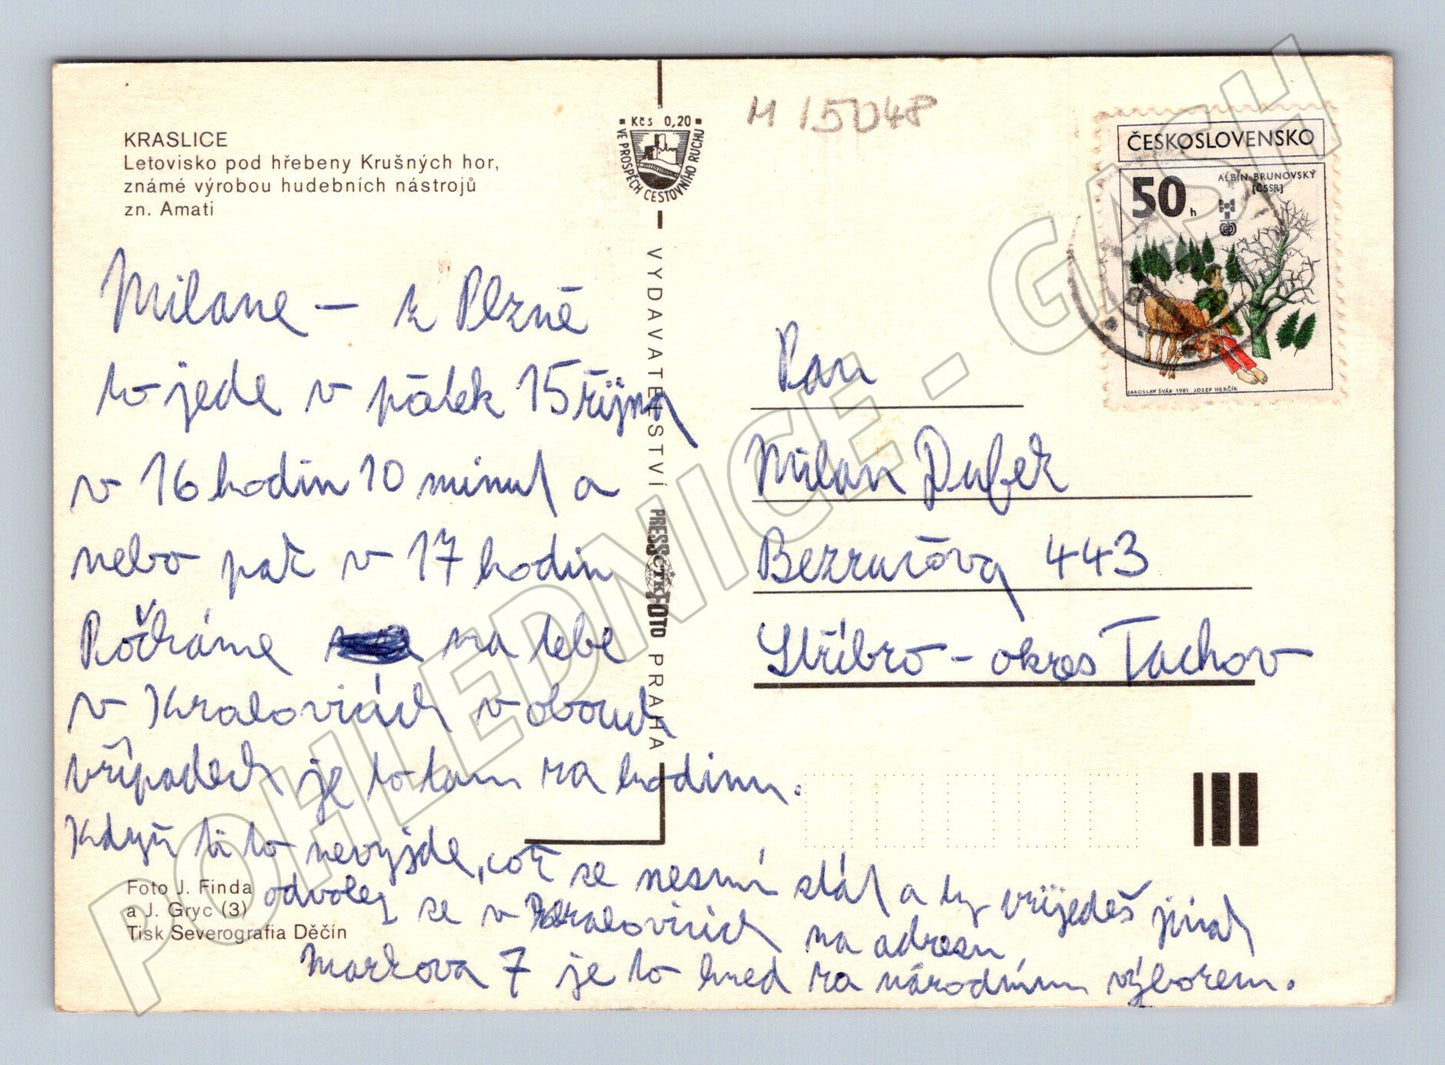 KRASLICE
Letovisko pod hřebeny Krušných hor,
známé výrobou hudebních nástrojů
zn. Amati
Milane – z Plzně
to jede v pátek 15 října
v 16 hodin 10 minut a
nebo pak v 17 hodin
Počkáme na tebe
v Kralovicích v obouch
případech je to tam za hodinu.
Když ti to nevyjde, což se nesmí stát a ty přijedeš jinak
odvolej se v Kralovicích na adresu
Markova 7 je to hned za národním výborem.
Foto J. Finda
a J. Gryc (3)
Tisk Severografia Děčín
Kčs 0,20
VE PROSPĚCH CESTOVNÍHO RUCHU
VYDAVATELSTVÍ PRESSFOTO PRAHA
ČTK
M 15048
ČESKOSLOVENSKO
50 h
ALBÍN BRUNOVSKÝ
[ČSSR]
JAROSLAV ŠVÁB 1981 JOSEF HERČÍK
Pan
Milan Dufek
Bezručova 443
Stříbro – okres Tachov
POHLEDNICE - GASH